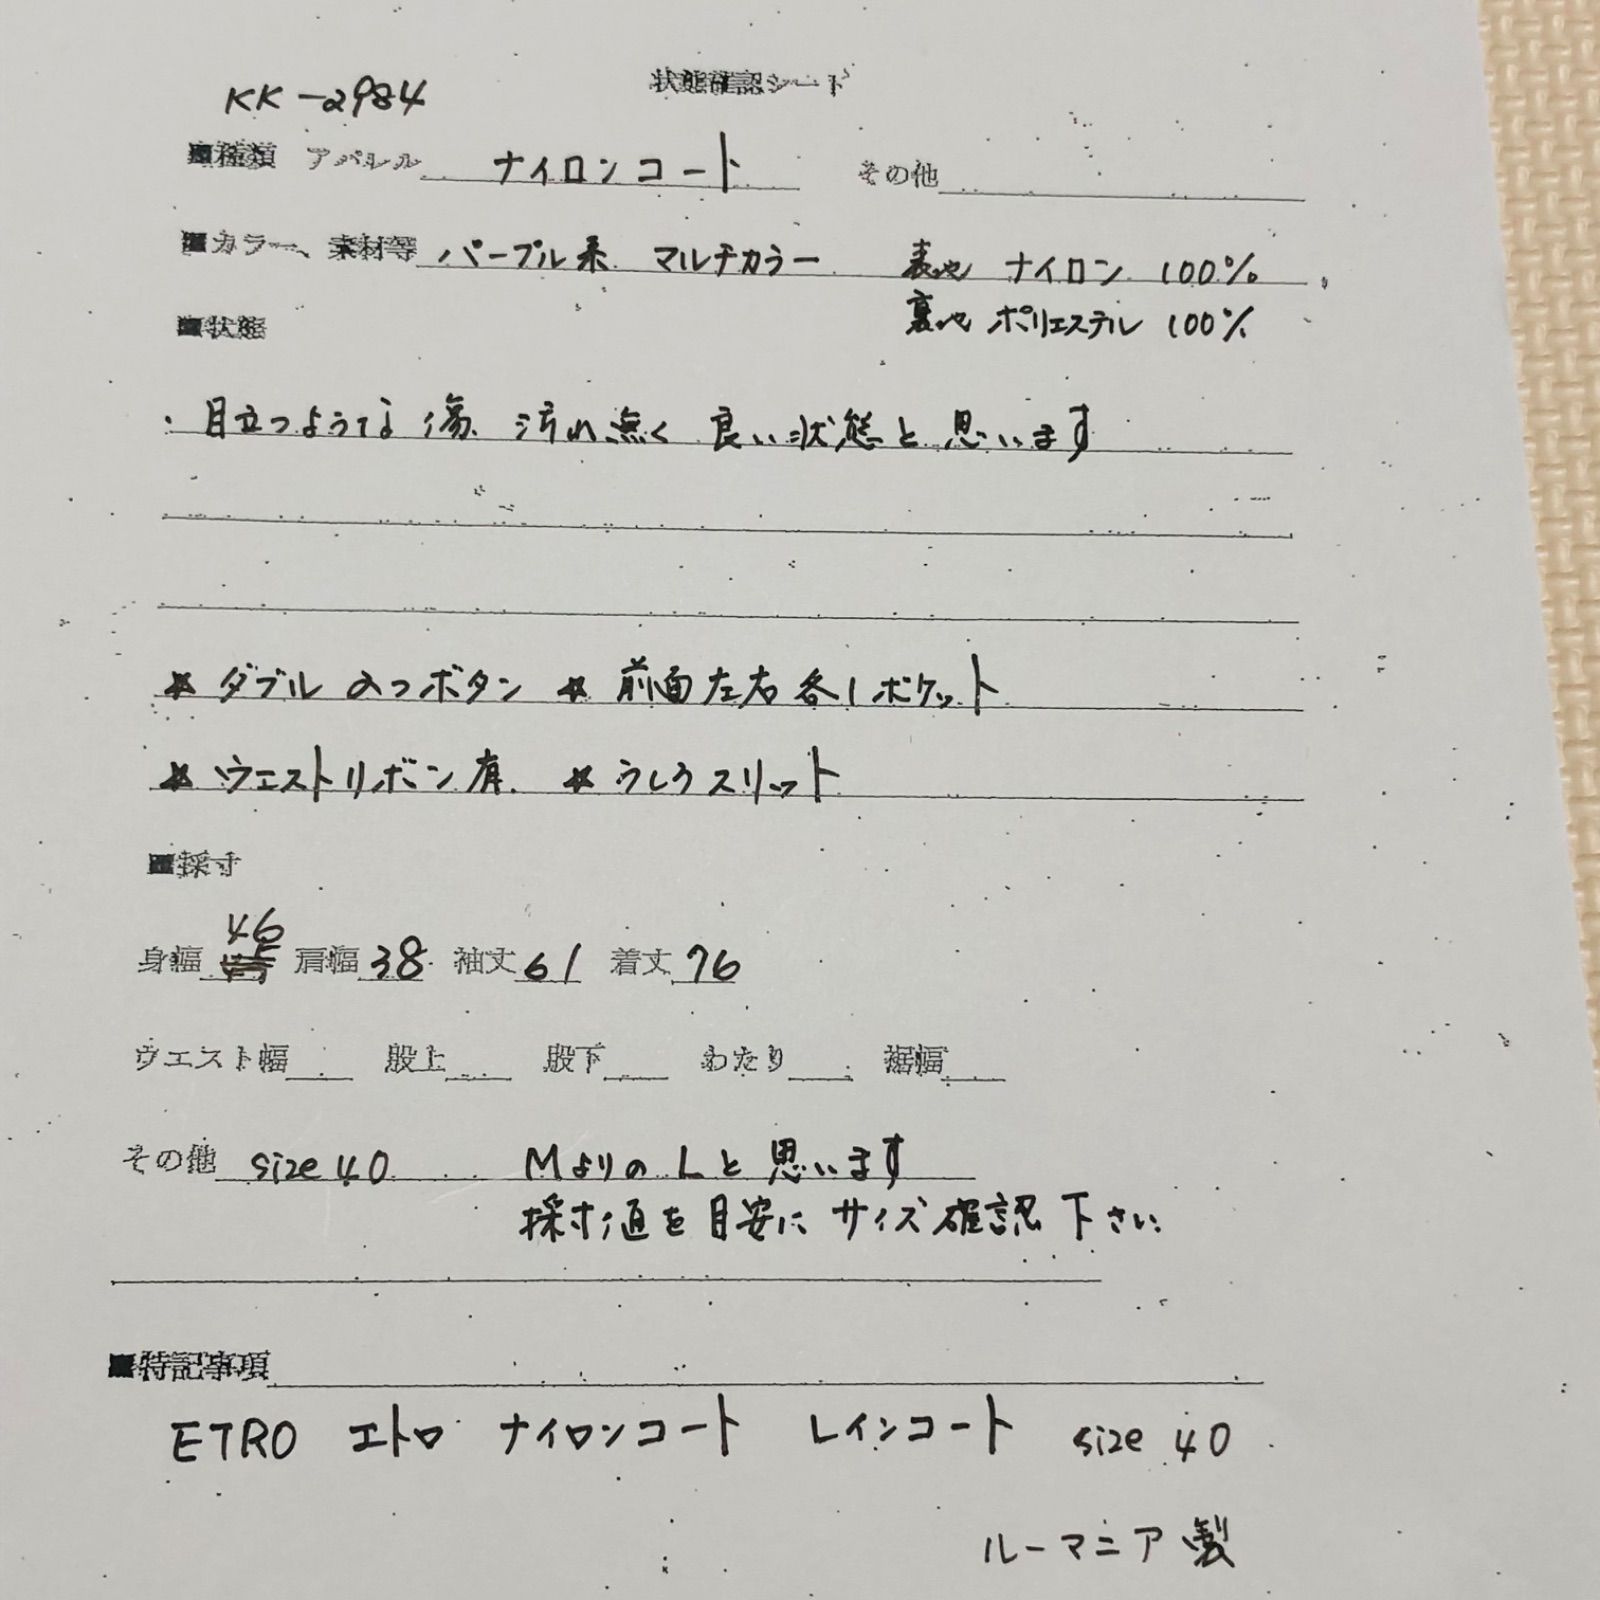 状態確認シート
KK-2984
■種類 アパレル ナイロンコート その他
■カラー、素材等 パープル系 マルチカラー 表地 ナイロン 100%
裏地 ポリエステル 100%
■状態
・目立つような傷、汚れ無く 良い状態と思います
★ダブル 2つボタン ★前面左右各1ポケット
★ウエストリボン有 ★うしろスリット
■採寸
身幅 46 肩幅 38 袖丈 61 着丈 76
ウエスト幅 股上 股下 わたり 裾幅
その他 size 40 MよりのLと思います
採寸値を目安にサイズ確認下さい
■特記事項
ETRO エトロ ナイロンコート レインコート size 40
ルーマニア製